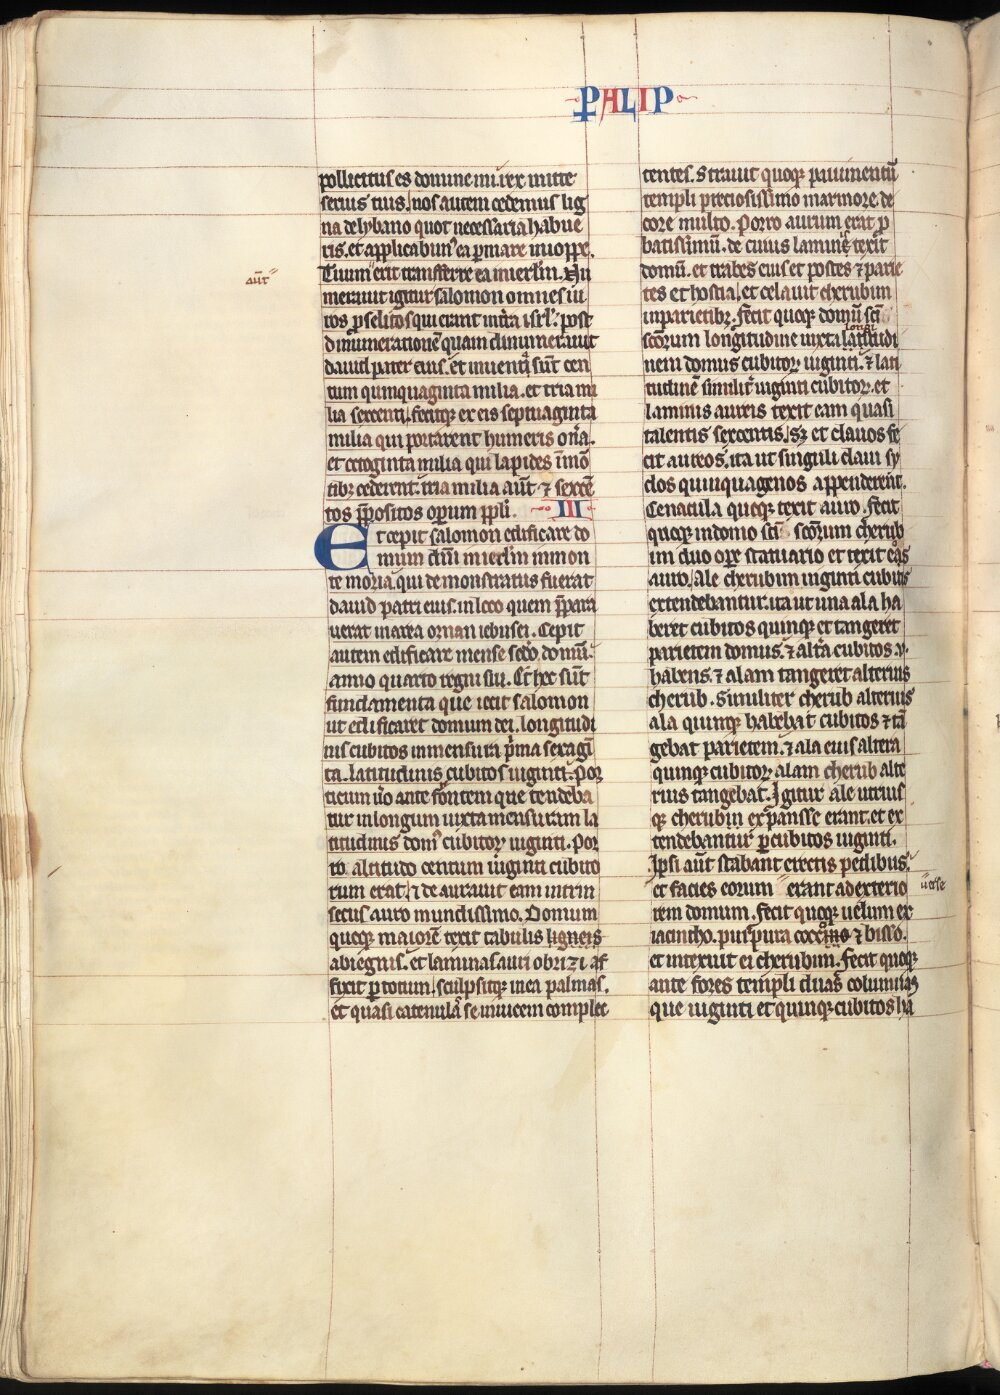 PALIP
pollicitus es domine mi. rex mitte
seruis tuis. nos autem cedemus lig
na de lybano quot necessaria habue
ris. et applicabim᷒ ea p mare in ioppe.
Tuum erit transferre ea in ierl̄m. Nu
aūt
merauit igitur salomon omnes ui
ros p̱selitos qui erant in t̄ra isrl̄. post
dinumerationē quam dinumerauit
dauid pater eius. et inuenti sūt cen
tum quinquaginta milia. et tria mi
lia sexcenti. fecitqꝫ ex eis septuaginta
milia qui portarent humeris on̄a.
et octoginta milia qui lapides ī mō
tibꝫ cederent. tria milia aūt ⁊ sexcē
tos p̄positos op̱um pp̱li. III
Et cepit salomon edificare do
mum dn̄i in ierl̄m in mon
te moria. qui demonstratus fuerat
dauid patri eius. in loco quem p̄para
uerat in area ornan iebusei. Cepit
autem edificare mense sc̄do domū.
anno quarto regni sui. Et hec sūt
fundamenta que iecit salomon
ut edificaret domum dei. longitudi
nis cubitos in mensura p̄ma sexagī
ta. latitudinis cubitos uiginti. Por
ticum ū̄o ante frōntem que tendeba
tur in longum iuxta mensuram la
titudinis dom᷒ cubitoꝝ uiginti. Por
ro altitudo centum uiginti cubito
rum erat. ⁊ de aurauit eam intrin
secus auro mundissimo. Domum
quoqꝫ maiorē texit tabulis ligneis
abiegnis. et laminas auri obrizi af
fixit p̱ totum. sculpsitqꝫ in ea palmas.
et quasi catenulas se inuicem complec
tentes. Strauit quoqꝫ pauimentū
templi preciosissimo marmore. de
core multo. Porro aurum erat p̱
batissimū. de cuius laminis texit
domū. et trabes eius et postes ⁊ parie
tes et hostia. et celauit cherubim
in parietibꝫ. fecit quoqꝫ domū sc̄i
longi
sc̄orum longitudine iuxta latitudi
nem domus cubitoꝝ uiginti. ⁊ lati
tudinē similit̄ uiginti cubitoꝝ. et
laminis aureis texit eam quasi
talentis sexcentis. sꝫ et clauos fe
cit aureos. ita ut singuli claui sy
clos quinquagenos appenderent.
Cenacula quoqꝫ texit auro. fecit
quoqꝫ in domo sc̄i sc̄orum cherub
im duo op̱e statuario et texit eos
auro. Ale cherubim uiginti cubitis
extendebantur. ita ut una ala ha
beret cubitos quinqꝫ et tangeret
parietem domus. ⁊ alt̄a cubitos .v.
habens. ⁊ alam tangeret alterius
cherub. Similiter cherub alterius
ala quinqꝫ habebat cubitos ⁊ tā
gebat parietem. ⁊ ala eius altera
quinqꝫ cubitoꝝ alam cherub alte
rius tangebat. Igitur ale utrius
qꝫ cherubin expansse erant. et ex
tendebantur p̱ cubitos uiginti.
Ipsi aūt stabant erectis pedibus.
et facies eorum erant ad exterio
uerse
rem domum. Fecit quoqꝫ uelum ex
iacincho. purpura cocco ⁊ bisso.
et intexuit ei cherubim. Fecit quoqꝫ
ante fores templi duas columnas
que uiginti et quinqꝫ cubitos ha